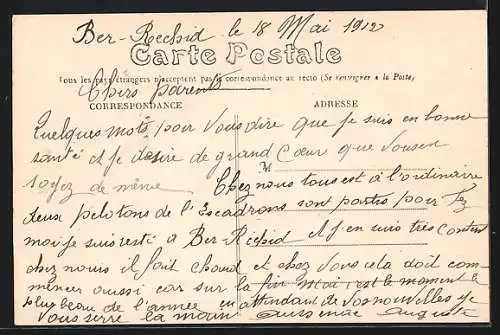 Ber-Rechid le 18 Mai 1912
Carte Postale
Tous les pays étrangers n'acceptent pas la correspondance au recto (Se renseigner à la Poste)
Chers parents
CORRESPONDANCE ADRESSE
Quelques mots pour vous dire que je suis en bonne
santé et je desire de grand Cœur que vous en
M
soyez de même Chez nous tous est à l'ordinaire
deux pelotons de l'Escadrons sont partis pour Fez
moi je suis resté a Ber-Rechid et j'en suis très content
chez nous il fait chaud et chez vous cela doit com-
mencer aussi car sur la fin Mai c'est le moment le
plus beau de l'année en attendant de vos nouvelles je
vous serre la main Auguste